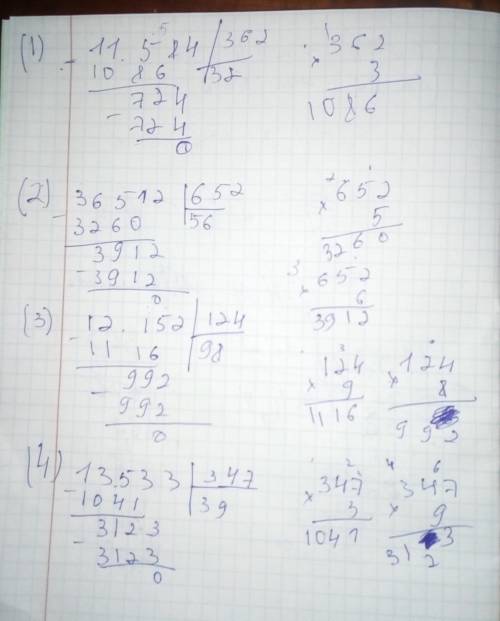 (1) 11.584 | 362
- 1086 | 32
724
- 724
0
1
362
× 3
1086
(2) 36512 | 652
- 3260 | 56
3912
- 3912
0
2 1
652
× 5
3260
3 1
652
× 6
3912
(3) 12.152 | 124
- 1116 | 98
992
- 992
0
3
124
× 9
1116
124
× 8
992
(4) 13.533 | 347
- 1041 | 39
3123
- 3123
0
1 2
347
× 3
1041
4 6
347
× 9
3123